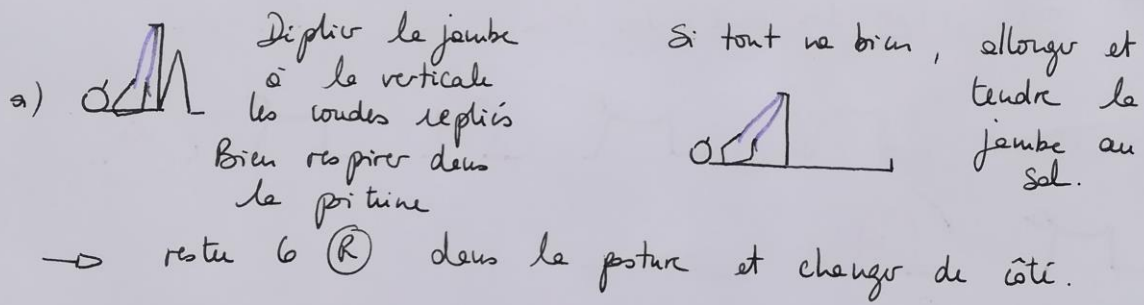 a)
Déplier la jambe
à la verticale
les coudes repliés
Bien respirer dans
la poitrine
Si tout va bien, allonger et
tendre la
jambe au
sol.
→ rester 6 Ⓡ dans la posture et changer de côté.